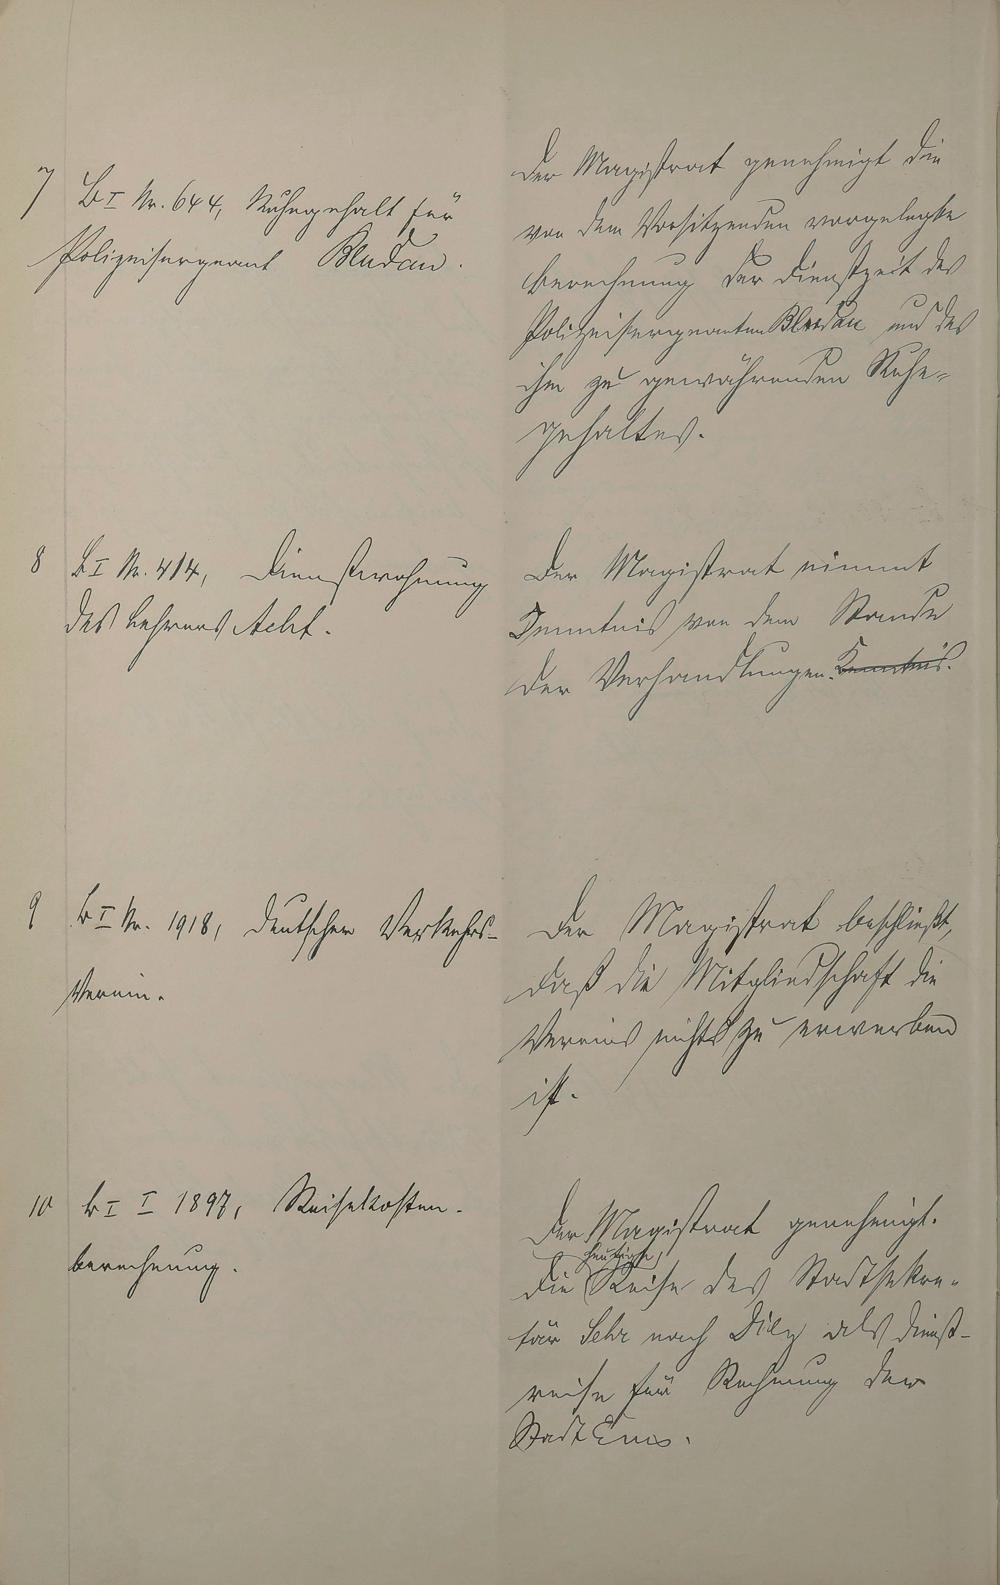 7 B I Nr. 644, Ruhegehalt für
Polizeisergeant Bludau.
Der Magistrat genehmigt die
von dem Vorsitzenden vorgelegte
Berechnung der Dienstzeit des
Polizeisergeanten Bludau und des
ihm zu gewährenden Ruhe-
gehaltes.
8 B I Nr. 414, Dienstwohnung
des Lehrers Acht.
Der Magistrat nimmt
Kenntnis von dem Stande
der Verhandlungen. Kenntnis.
9 B I Nr. 1918, Deutscher Verkehrs-
Verein.
Der Magistrat beschließt,
daß die Mitgliedschaft die
Vereins nicht zu erwerben
ist.
10 B I I 1897, Reisekosten-
berechnung.
Der Magistrat genehmigt.
heutige
die Reise des Stadtsekre-
tär Sehr nach Diez als Dienst-
reise für Rechnung der
Stadt Ems.